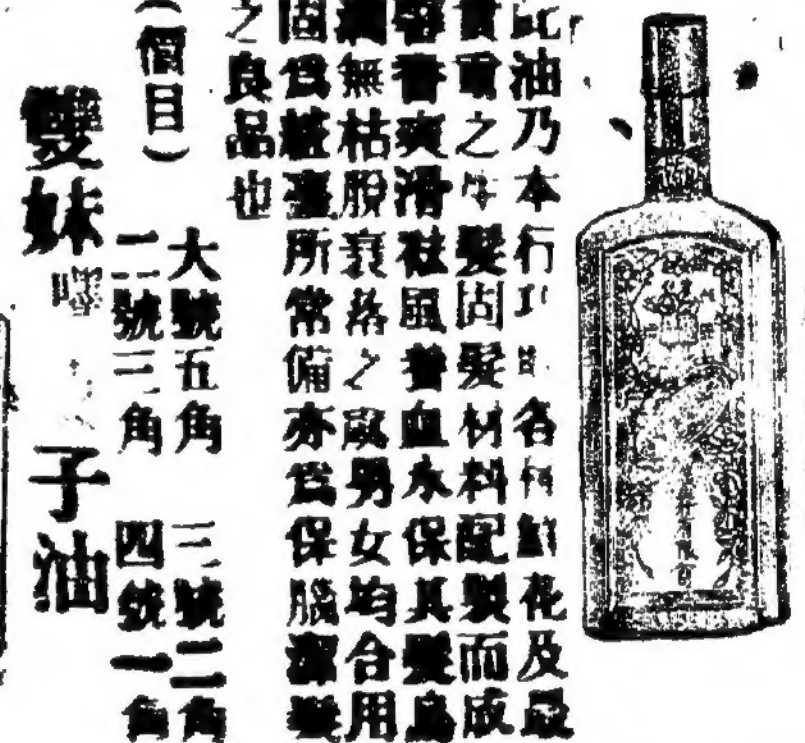 此油乃本行 各 鮮花及最
貴重之生髮固髮材料配製而成
馨香爽滑祛風養血永保其髮烏
潤無枯脫衰落之 男女均合用
固為粧臺所常備亦為保腦潔髮
之良品也
(價目) 大號五角 三號二角
二號三角 四號一角
雙妹嘜 子油